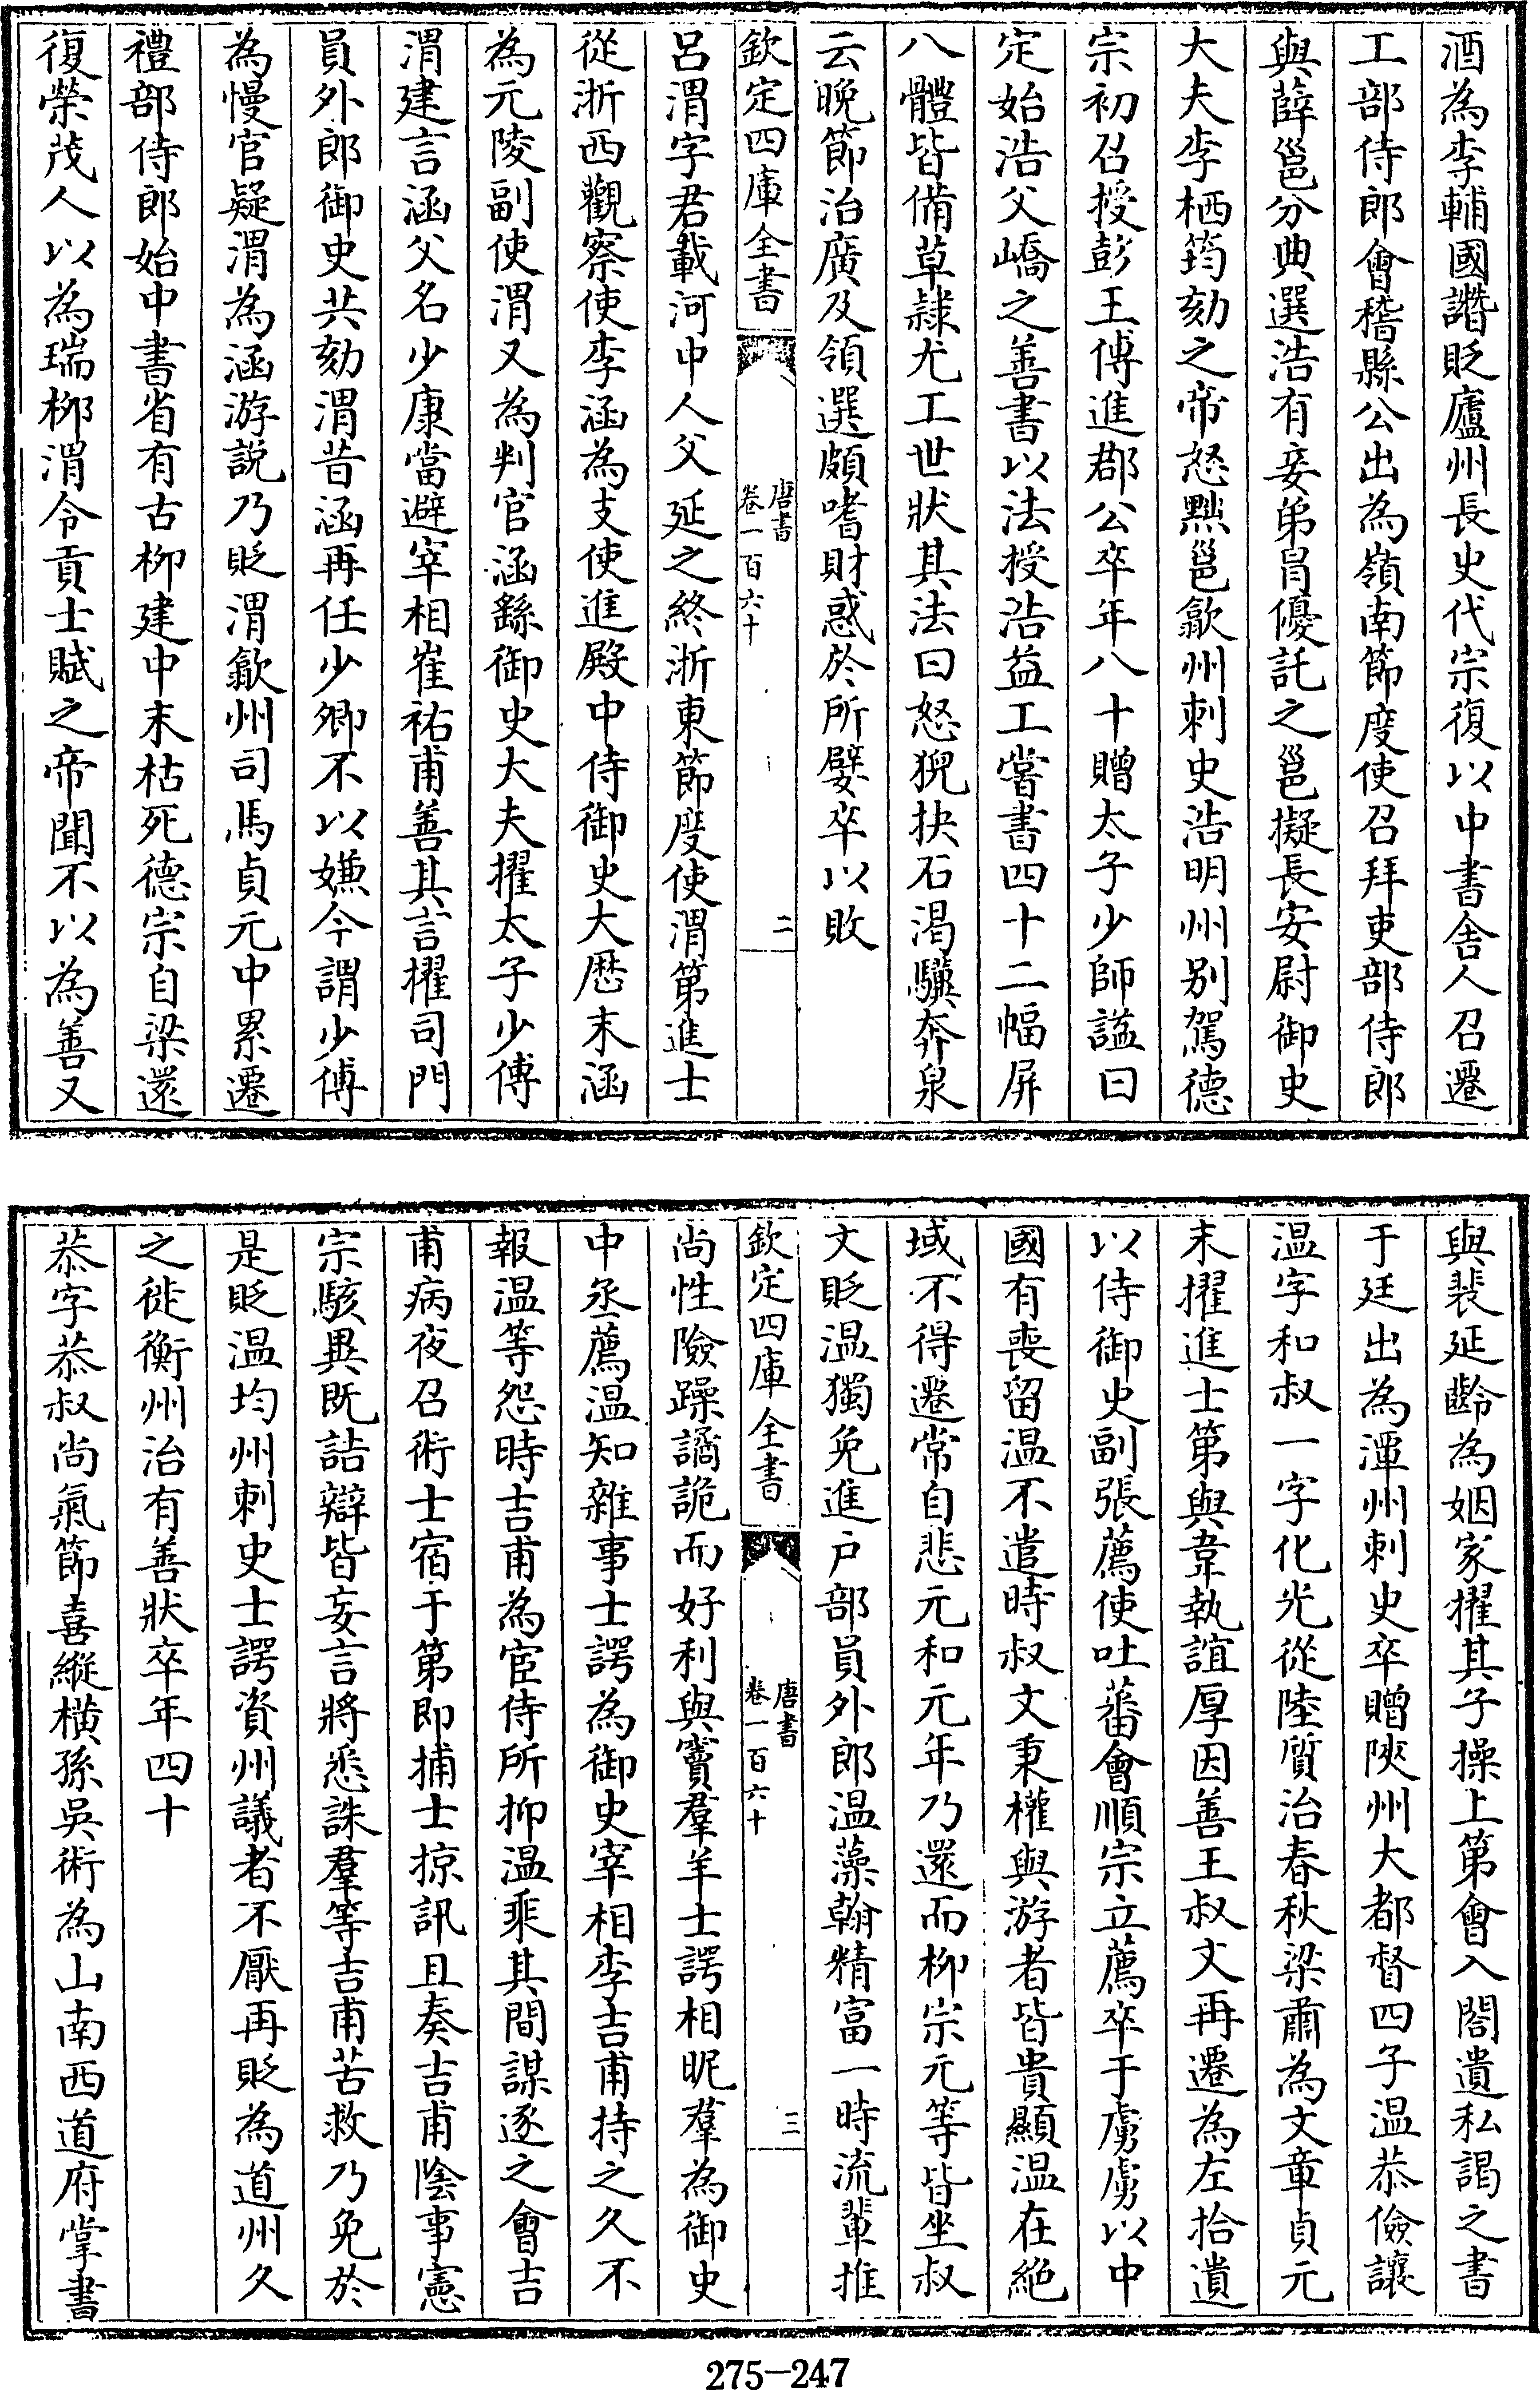 酒為李輔國譖貶廬州長史代宗復以中書舍人召遷
工部侍郎會稽縣公出為嶺南節度使召拜吏部侍郎
與薛邕分典選浩有妾弟冒優託之邕擬長安尉御史
大夫李栖筠劾之帝怒黜邕歙州刺史浩明州别駕德
宗初召授彭王傅進郡公卒年八十贈太子少師諡曰
定始浩父嶠之善書以法授浩益工嘗書四十二幅屏
八體皆備草隸尤工世狀其法曰怒猊抉石渴驥奔泉
云晚節治廣及領選頗嗜財惑於所嬖卒以敗
欽定四庫全書
唐書
卷一百六十
二
呂渭字君載河中人父延之終浙東節度使渭第進士
從浙西觀察使李涵為支使進殿中侍御史大厯末涵
為元陵副使渭又為判官涵繇御史大夫擢太子少傅
渭建言涵父名少康當避宰相崔祐甫善其言擢司門
員外郎御史共劾渭昔涵再任少卿不以嫌今謂少傅
為慢官疑渭為涵游説乃貶渭歙州司馬貞元中累遷
禮部侍郎始中書省有古柳建中末枯死德宗自梁還
復榮茂人以為瑞柳渭令貢士賦之帝聞不以為善又
與裴延齡為姻家擢其子操上第會入閤遺私謁之書
于廷出為潭州刺史卒贈陜州大都督四子温恭儉讓
温字和叔一字化光從陸質治春秋梁肅為文章貞元
末擢進士第與韋執誼厚因善王叔文再遷為左拾遺
以侍御史副張薦使吐蕃會順宗立薦卒于虜虜以中
國有喪留温不遣時叔文秉權與游者皆貴顯温在絶
域不得遷常自悲元和元年乃還而柳宗元等皆坐叔
文貶温獨免進户部員外郎温藻翰精富一時流輩推
欽定四庫全書
唐書
卷一百六十
三
尚性險躁譎詭而好利與竇羣羊士諤相昵羣為御史
中丞薦温知雜事士諤為御史宰相李吉甫持之久不
報温等怨時吉甫為宦侍所抑温乘其間謀逐之會吉
甫病夜召術士宿于第即捕士掠訊且奏吉甫陰事憲
宗駭異既詰辯皆妄言將悉誅羣等吉甫苦救乃免於
是貶温均州刺史士諤資州議者不厭再貶為道州久
之徙衡州治有善狀卒年四十
恭字恭叔尚氣節喜縱橫孫吳術為山南西道府掌書
275-247